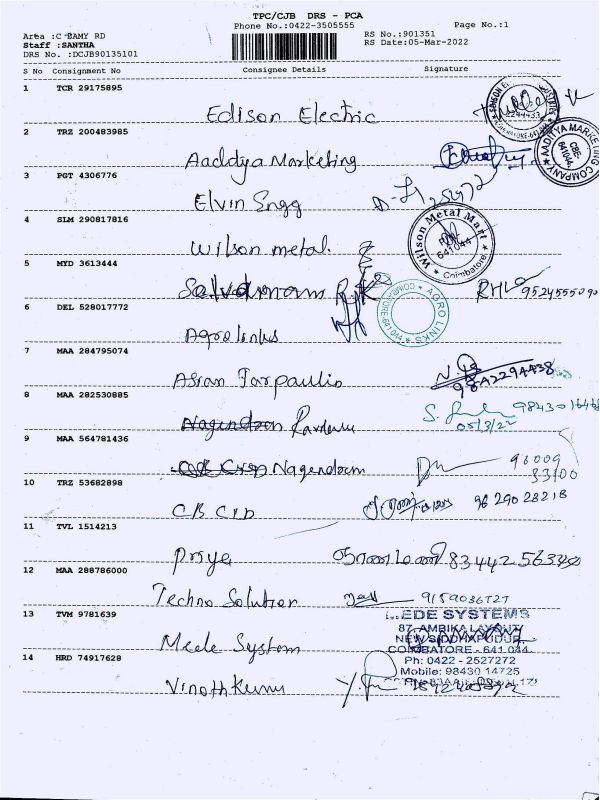 TPC/CJB DRS - PCA
Phone No.:0422-3505555
Page No.:1
Area :C SAMY RD
RS No.:901351
Staff :SANTHA
RS Date:05-Mar-2022
DRS No. :DCJB90135101
S No Consignment No Consignee Details Signature
1 TCR 29175895
Edison Electric
2 TRZ 200483985
Aaddya Marketing
AADITYA MARKETING COMPANY
CBE-641044
3 PGT 4306776
Elvin Engg
4 SLM 290817816
Wilson metal.
Wilson Metal Mart
641044
Coimbatore
5 MYD 3613444
9524555090
6 DEL 528017772
Agro links
AGRO LINKS
COIMBATORE-641 044
7 MAA 284795074
Asian Tarpaulin
9842294438
8 MAA 282530885
05/3/22
9 MAA 564781436
Nagendram
96009
33100
10 TRZ 53682898
CB CID
9629028218
11 TVL 1514213
Priya
12 MAA 288786000
Techno Solution
9159036727
13 TVM 9781639
Meede System
EDE SYSTEMS
87, AMBIKA LAYOUT
NEW SIDDHAPUDUR
COIMBATORE - 641 044.
Ph: 0422 - 2527272
Mobile: 98430 14725
14 HRD 74917628
Vinothkumar